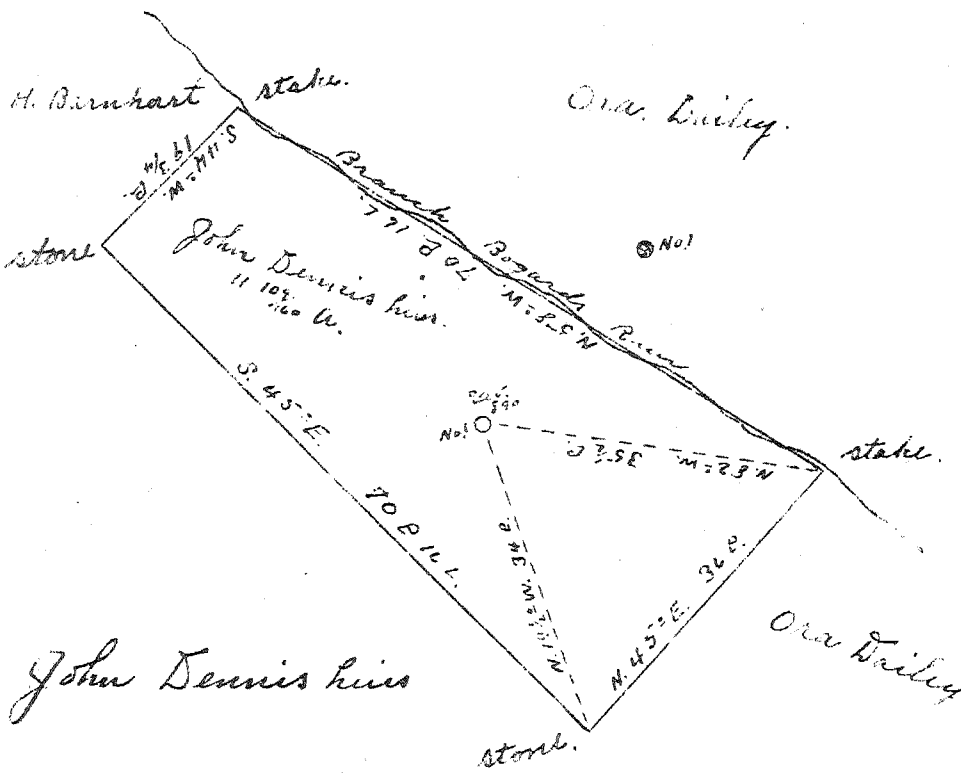 H. Barnhart
stake.
Ora. Dailey.
19 3/4 P.
S. 44° W.
stone
Branch Bogards Run
N. 58° W. 70 P. 16 L.
No1
John Dennis hirs.
11 109/160 A.
S. 45° E. 70 P 16 L.
No1
N. 82° W. 35 1/2 P.
stake.
N. 19 1/2° W. 34 P.
N. 45° E. 36 P.
Ora Dailey
John Dennis hirs
stone.